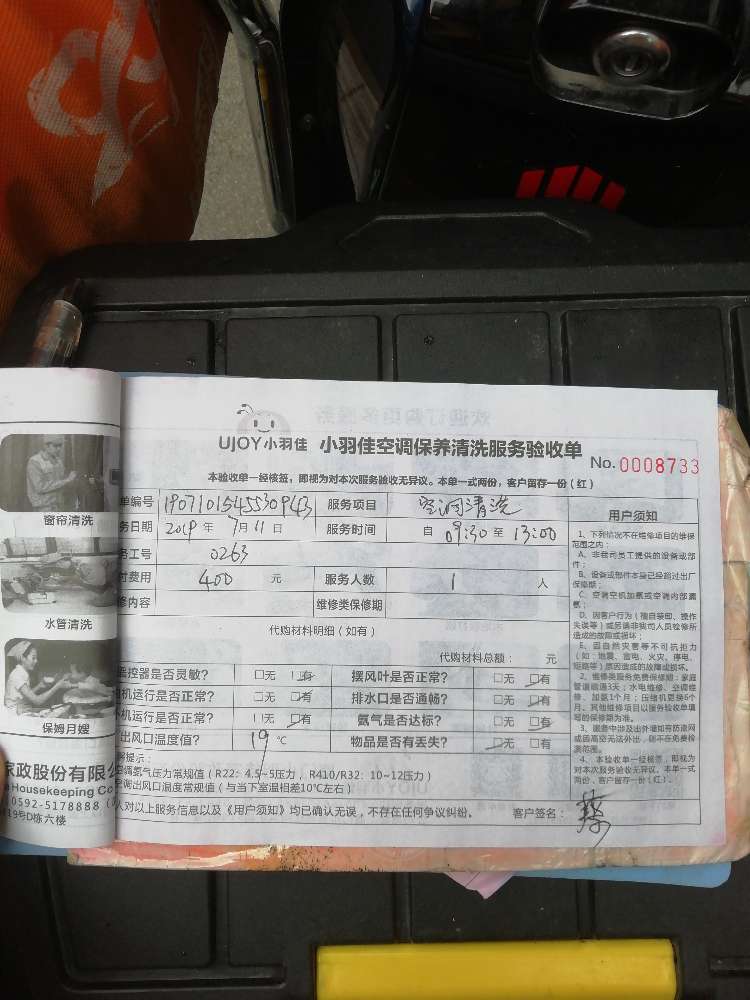 UJOY小羽佳 小羽佳空调保养清洗服务验收单
No. 0008733
本验收单一经核签，即视为对本次服务验收无异议。本单一式两份，客户留存一份（红）
单编号 服务项目 空调清洗
务日期 2019 年 7月 11 日 服务时间 自 09:30 至 13:00
务工号 0263
付费用 400 元 服务人数 1 人
修内容 维修类保修期
代购材料明细（如有）
代购材料总额： 元
遥控器是否灵敏？ 口无 口有 摆风叶是否正常？ 口无 口有
机运行是否正常？ 口无 口有 排水口是否通畅？ 口无 口有
机运行是否正常？ 口无 口有 氨气是否达标？ 口无 口有
出风口温度值？ 19 ℃ 物品是否有丢失？ 口无 口有
解提示：
空调氨气压力常规值（R22：4.5~5压力，R410/R32：10~12压力）
空调出风口温度常规值（与当下室温相差10℃左右）
人对以上服务信息以及《用户须知》均已确认无误，不存在任何争议纠纷。 客户签名：
用户须知
1、下列情况不在维修项目的维保
范围之内：
A、非我司员工提供的设备或部
件；
B、设备或部件本身已经超过出厂
保修期；
C、空调空机加氨或空调内部漏
氨；
D、因客户行为（擅自装卸、操作
失误等）或另请非我司人员检修所
造成的故障或损坏；
E、因自然灾害等不可抗拒力
（如：地震、雷电、火灾、停电、
短路等）原因造成的故障或损坏。
2、维修类服务免费保修期：家庭
管道疏通3天；水电维修、空调维
修、加氨1个月；压缩机更换6个
月。其他维修项目以服务验收单填
写的保修期为准。
3、服务中涉及出外墙如有防盗网
或因高空无法外出，则不在免费检
测范围。
4、本验收单一经核签，即视为
对本次服务验收无异议。本单一式
两份，客户留存一份（红）。
窗帘清洗
水管清洗
保姆月嫂
家政股份有限公
Housekeeping Co
0592-5178888
19号D栋六楼